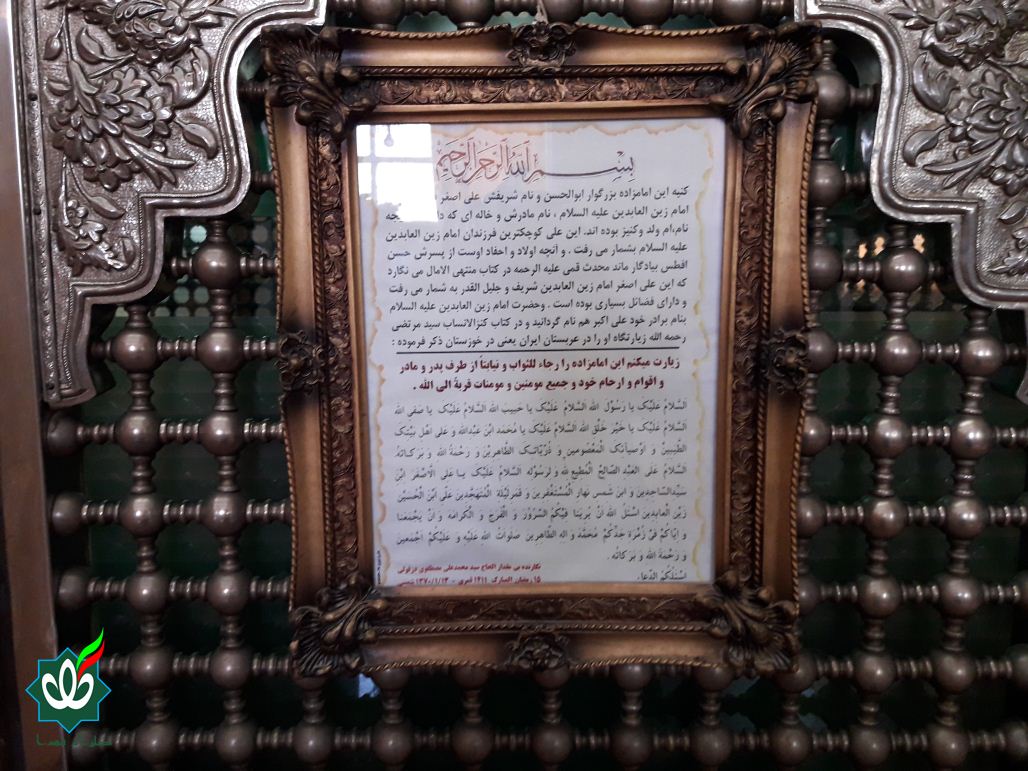 بسم الله الرحمن الرحیم
کنیه این امامزاده بزرگوار ابوالحسن و نام شریفش علی اصغر
امام زین العابدین علیه السلام ، نام مادرش و خاله ای که
نام،ام ولد وکنیز بوده اند. این علی کوچکترین فرزندان امام زین العابدین
علیه السلام بشمار می رفت . و آنچه اولاد و احفاد اوست از پسرش حسن
افطس بیادگار ماند محدث قمی علیه الرحمه در کتاب منتهی الامال می نگارد
که این علی اصغر امام زین العابدین شریف و جلیل القدر به شمار می رفت
و دارای فضائل بسیاری بوده است . وحضرت امام زین العابدین علیه السلام
بنام برادر خود علی اکبر هم نام گردانید و در کتاب کنزالانساب سید مرتضی
رحمه الله زیارتگاه او را در عربستان ایران یعنی در خوزستان ذکر فرموده :
زیارت میکنم این امامزاده را رجاء للثواب و نیابتاً از طرف پدر و مادر
و اقوام و ارحام خود و جمیع مومنین و مومنات قربة الی الله .
اَلسَّلامُ عَلَیْکَ یا رَسُولَ الله اَلسَّلامُ عَلَیْکَ یا حَبیبَ الله اَلسَّلامُ عَلَیْکَ یا صَفی الله
اَلسَّلامُ عَلَیْکَ یا خَیْرَ خَلْقِ الله اَلسَّلامُ عَلَیْکَ یا مُحَمَد ابْنَ عَبْدِالله وَ عَلی اهْلِ بَیْتِکَ
الطَّیِبینَ وَ اَوْصیائِکَ الْمَعْصُومینَ وَ ذُرّیّاتِکَ الطّاهِرینَ وَ رَحْمَةُ الله وَ بَرَکاتُهُ
اَلسَّلامُ عَلَی العَبْدِ الصّالِحِ الْمُطیعِ لله وَ لِرَسُولِهِ اَلسَّلامُ عَلَیْکَ یا عَلی الْاَصْغَر ابْنَ
سَیِّدِالسّاجِدینَ وَ ابنَ شَمسِ نَهارِ الْمُسْتَغْفِرینَ وَ قَمَرِ لَیْلَةِ الْمُتَهَجِّدینَ عَلی ابْنِ الْحُسَیْنِ
زَیْنِ الْعابِدینَ اَسْئَلُ الله اَنْ یُرِیَنا فیکُمُ السُّرُورَ وَ الْفَرَجَ وَ الْکَرامَه وَ اَنْ یَجْمَعَنا
وَ ایّاکُمْ فی زُمْرَه جَدِّکُمْ مُحَمَّد وَ اله الطّاهِرینَ صَلَواتُ اللهِ عَلَیْهِ وَ عَلَیْکُمْ اَجْمَعینَ
وَ رَحْمَةُ الله وَ بَرَکاتُهُ .
اَسْئَلُکُمُ الدُّعاء
نگارنده بی مقدار الحاج سید محمدعلی مصطفوی دزفولی
۱۵ رمضان المبارک ۱۴۱۱ قمری - ۱۳۷۰/۱/۱۳ شمسی